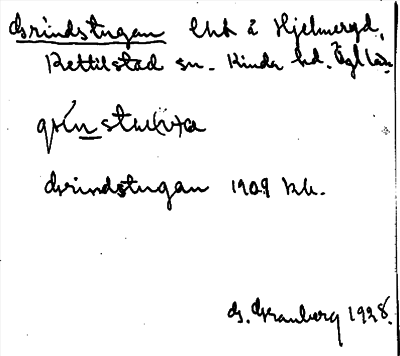 Grindstugan lht å Hjelmeryd,
Kettilstad sn. Kinda hd. Ögl län.
gri̇̀n stu(v)a
Grindstugan 1909 kk.
G. Granberg 1928.